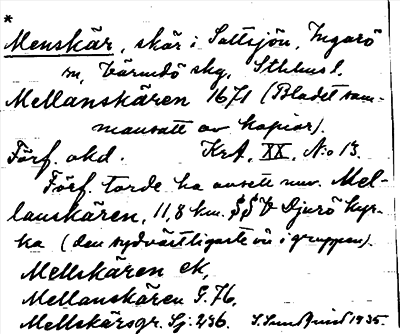 *
Menskär, skär i Saltsjön, Ingarö
sn, Värmdö skg, Sthlms l.
Mellanskären 1671 (Bladet sam-
mansatt av kopior).
Förf. okd. KrA, XX. N:o 13.
Förf. torde ha avsett nuv. Mel-
lanskären, 11,8 km. SSV Djurö kyr-
ka (den sydvästligaste ön i gruppen).
Mellskären ek,
Mellanskären G. 76,
Mellskärsgr. Sj. 236. S. Sundquist 1935.